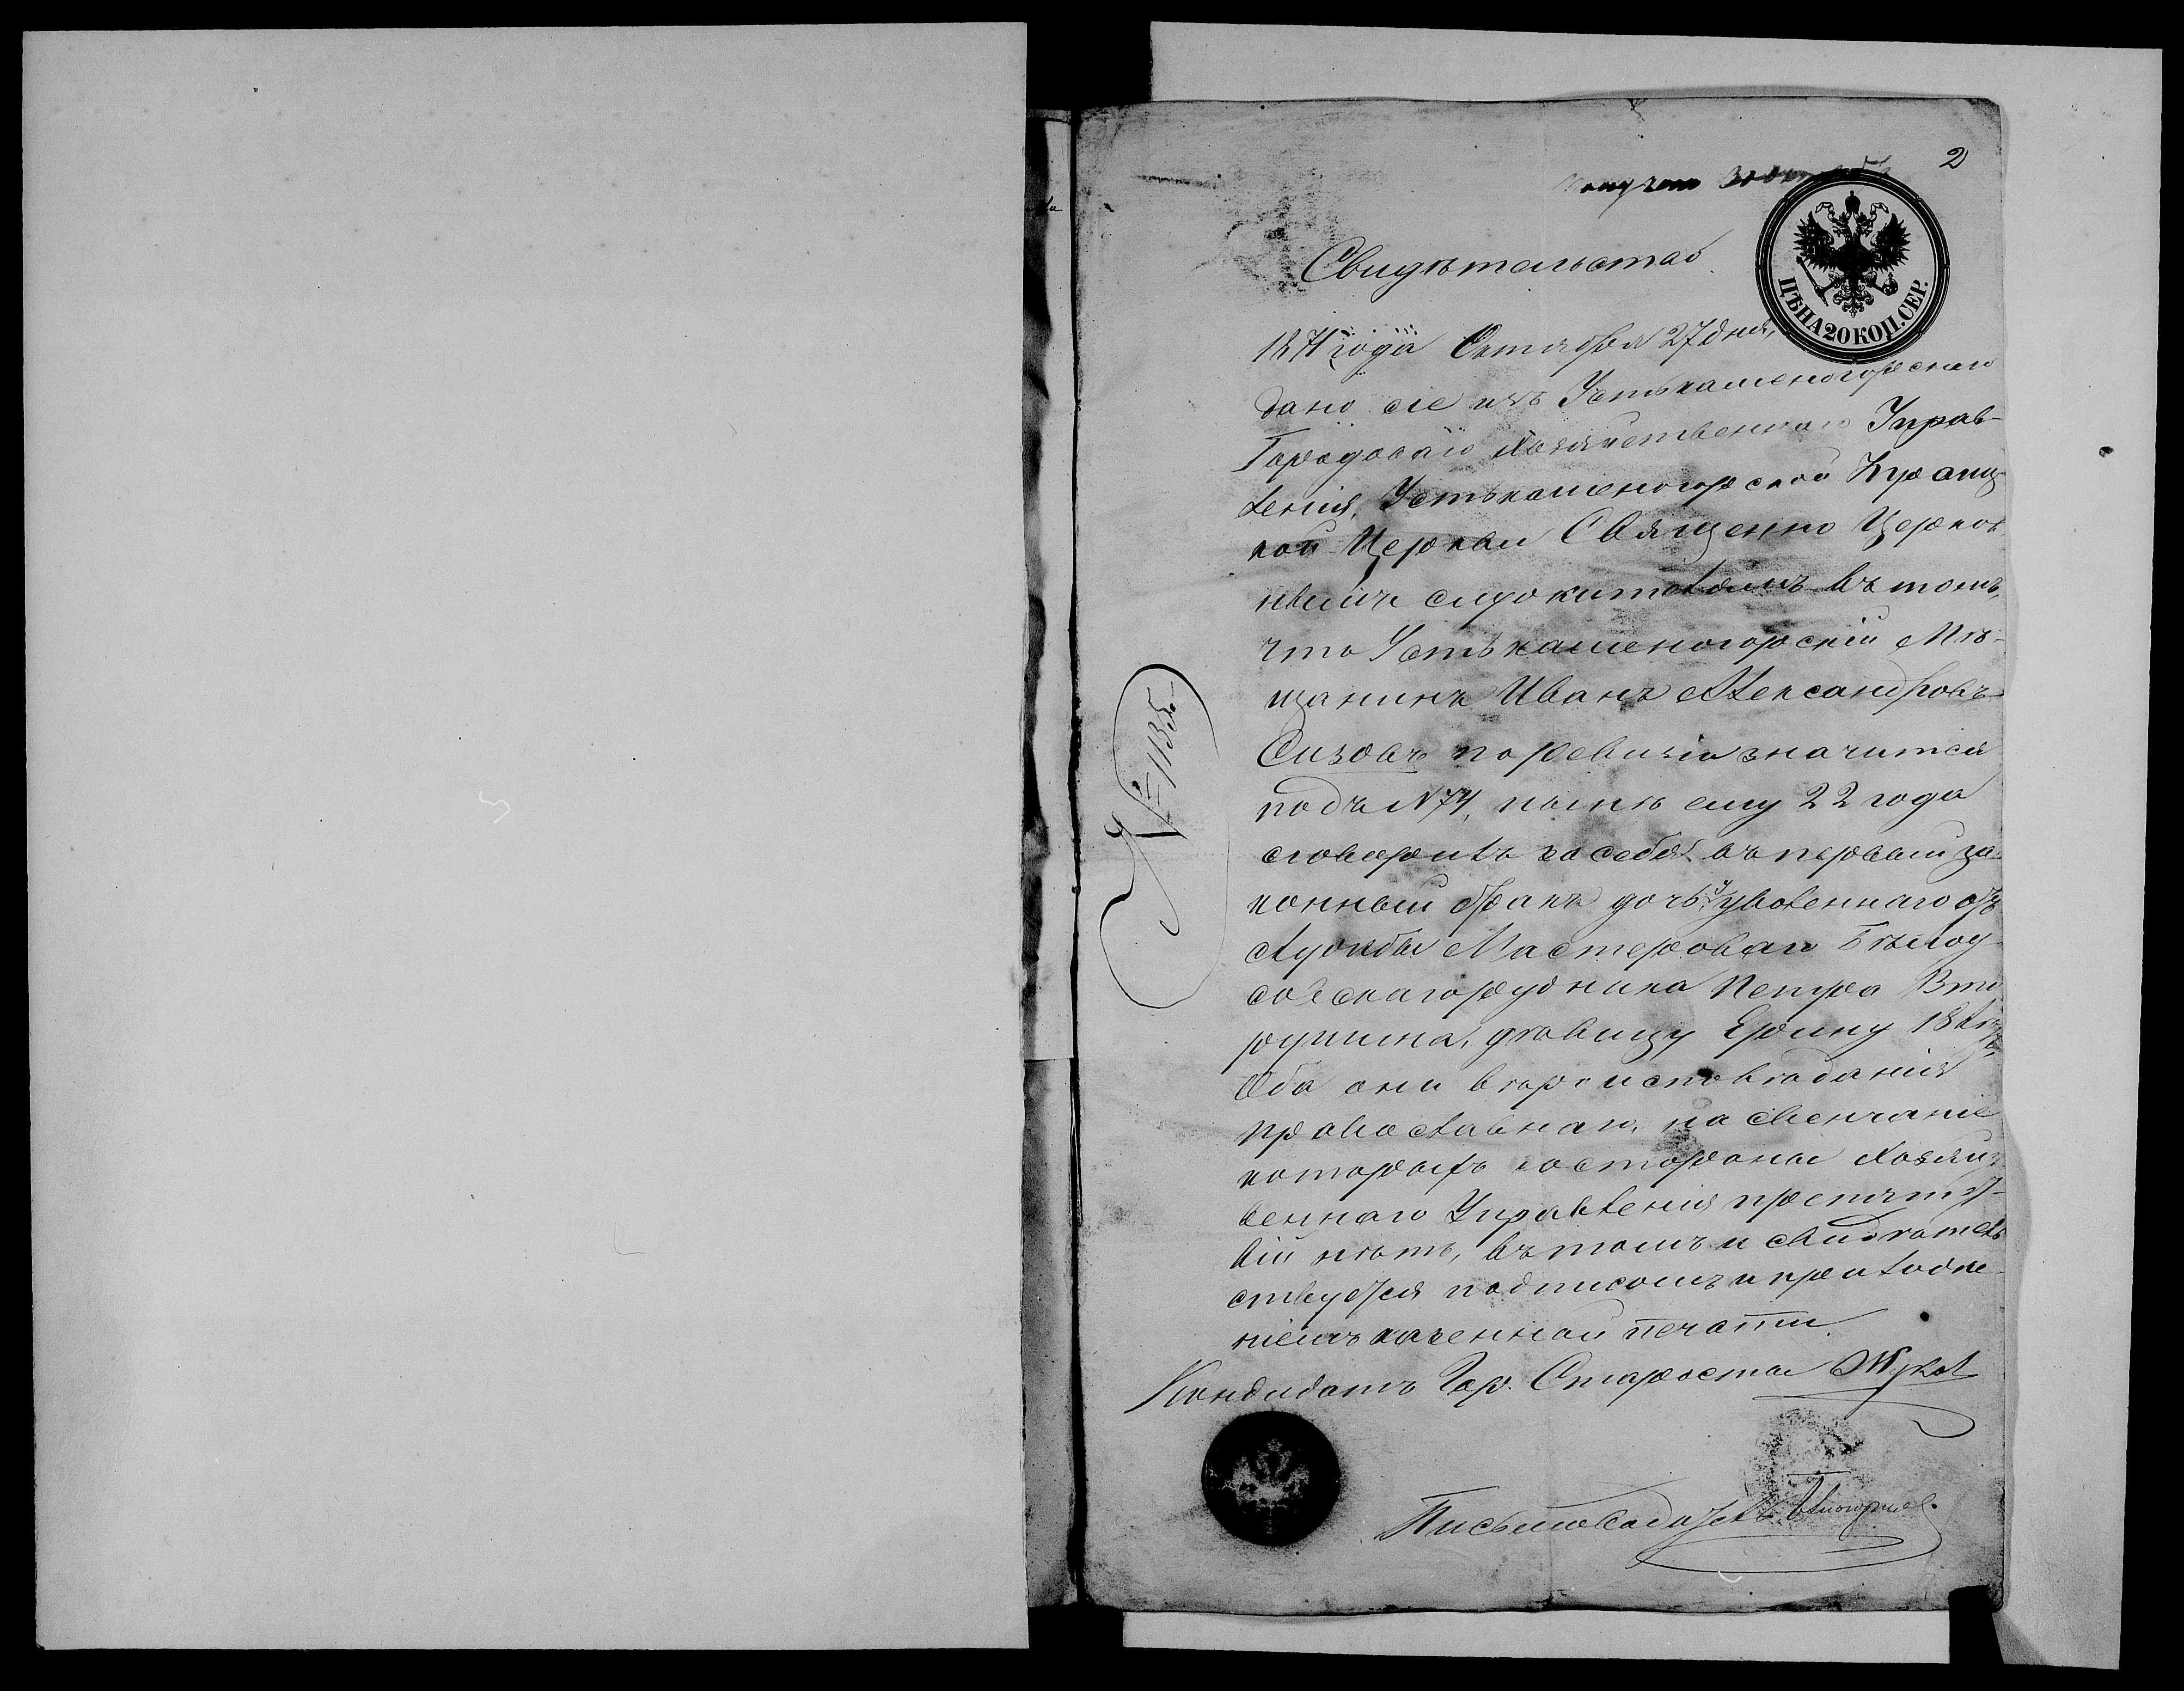 2
получено 30 Октября
Свидѣтельство
ЦѢНА 20 КОП. СЕР.
1871 года Октября 27 дня,
дано сіе изъ Устькаменогорскаго
Городоваго Хозяйственнаго Управ-
ленія, Устькаменогорской Троиц
кой Церкви Священно Церков
нымъ служителямъ въ томъ,
что Устькаменогорскій Мѣ-
щанинъ Иванъ Александровъ
Сизовъ по ревизіи значится
подъ N 74, нынѣ ему 22 года
сговорилъ за себя въ первый за
конный бракъ дочь уволеннаго отъ
службы Мастероваго Бѣлоу
совскаго рудника Петра Вто
рушина, дѣвицу Ирину 18 лѣтъ
Оба они вѣроисповѣданія
православнаго, на свенчаніе
которыхъ со стороны Хозяйст
веннаго Управленія препятст-
вій нѣтъ, въ томъ и свидѣтель
ствуется подписомъ и приложе-
ніемъ казенной печати.
Кандидатъ Гор. Старосты Жуков
Письмоводитель
№ 1135